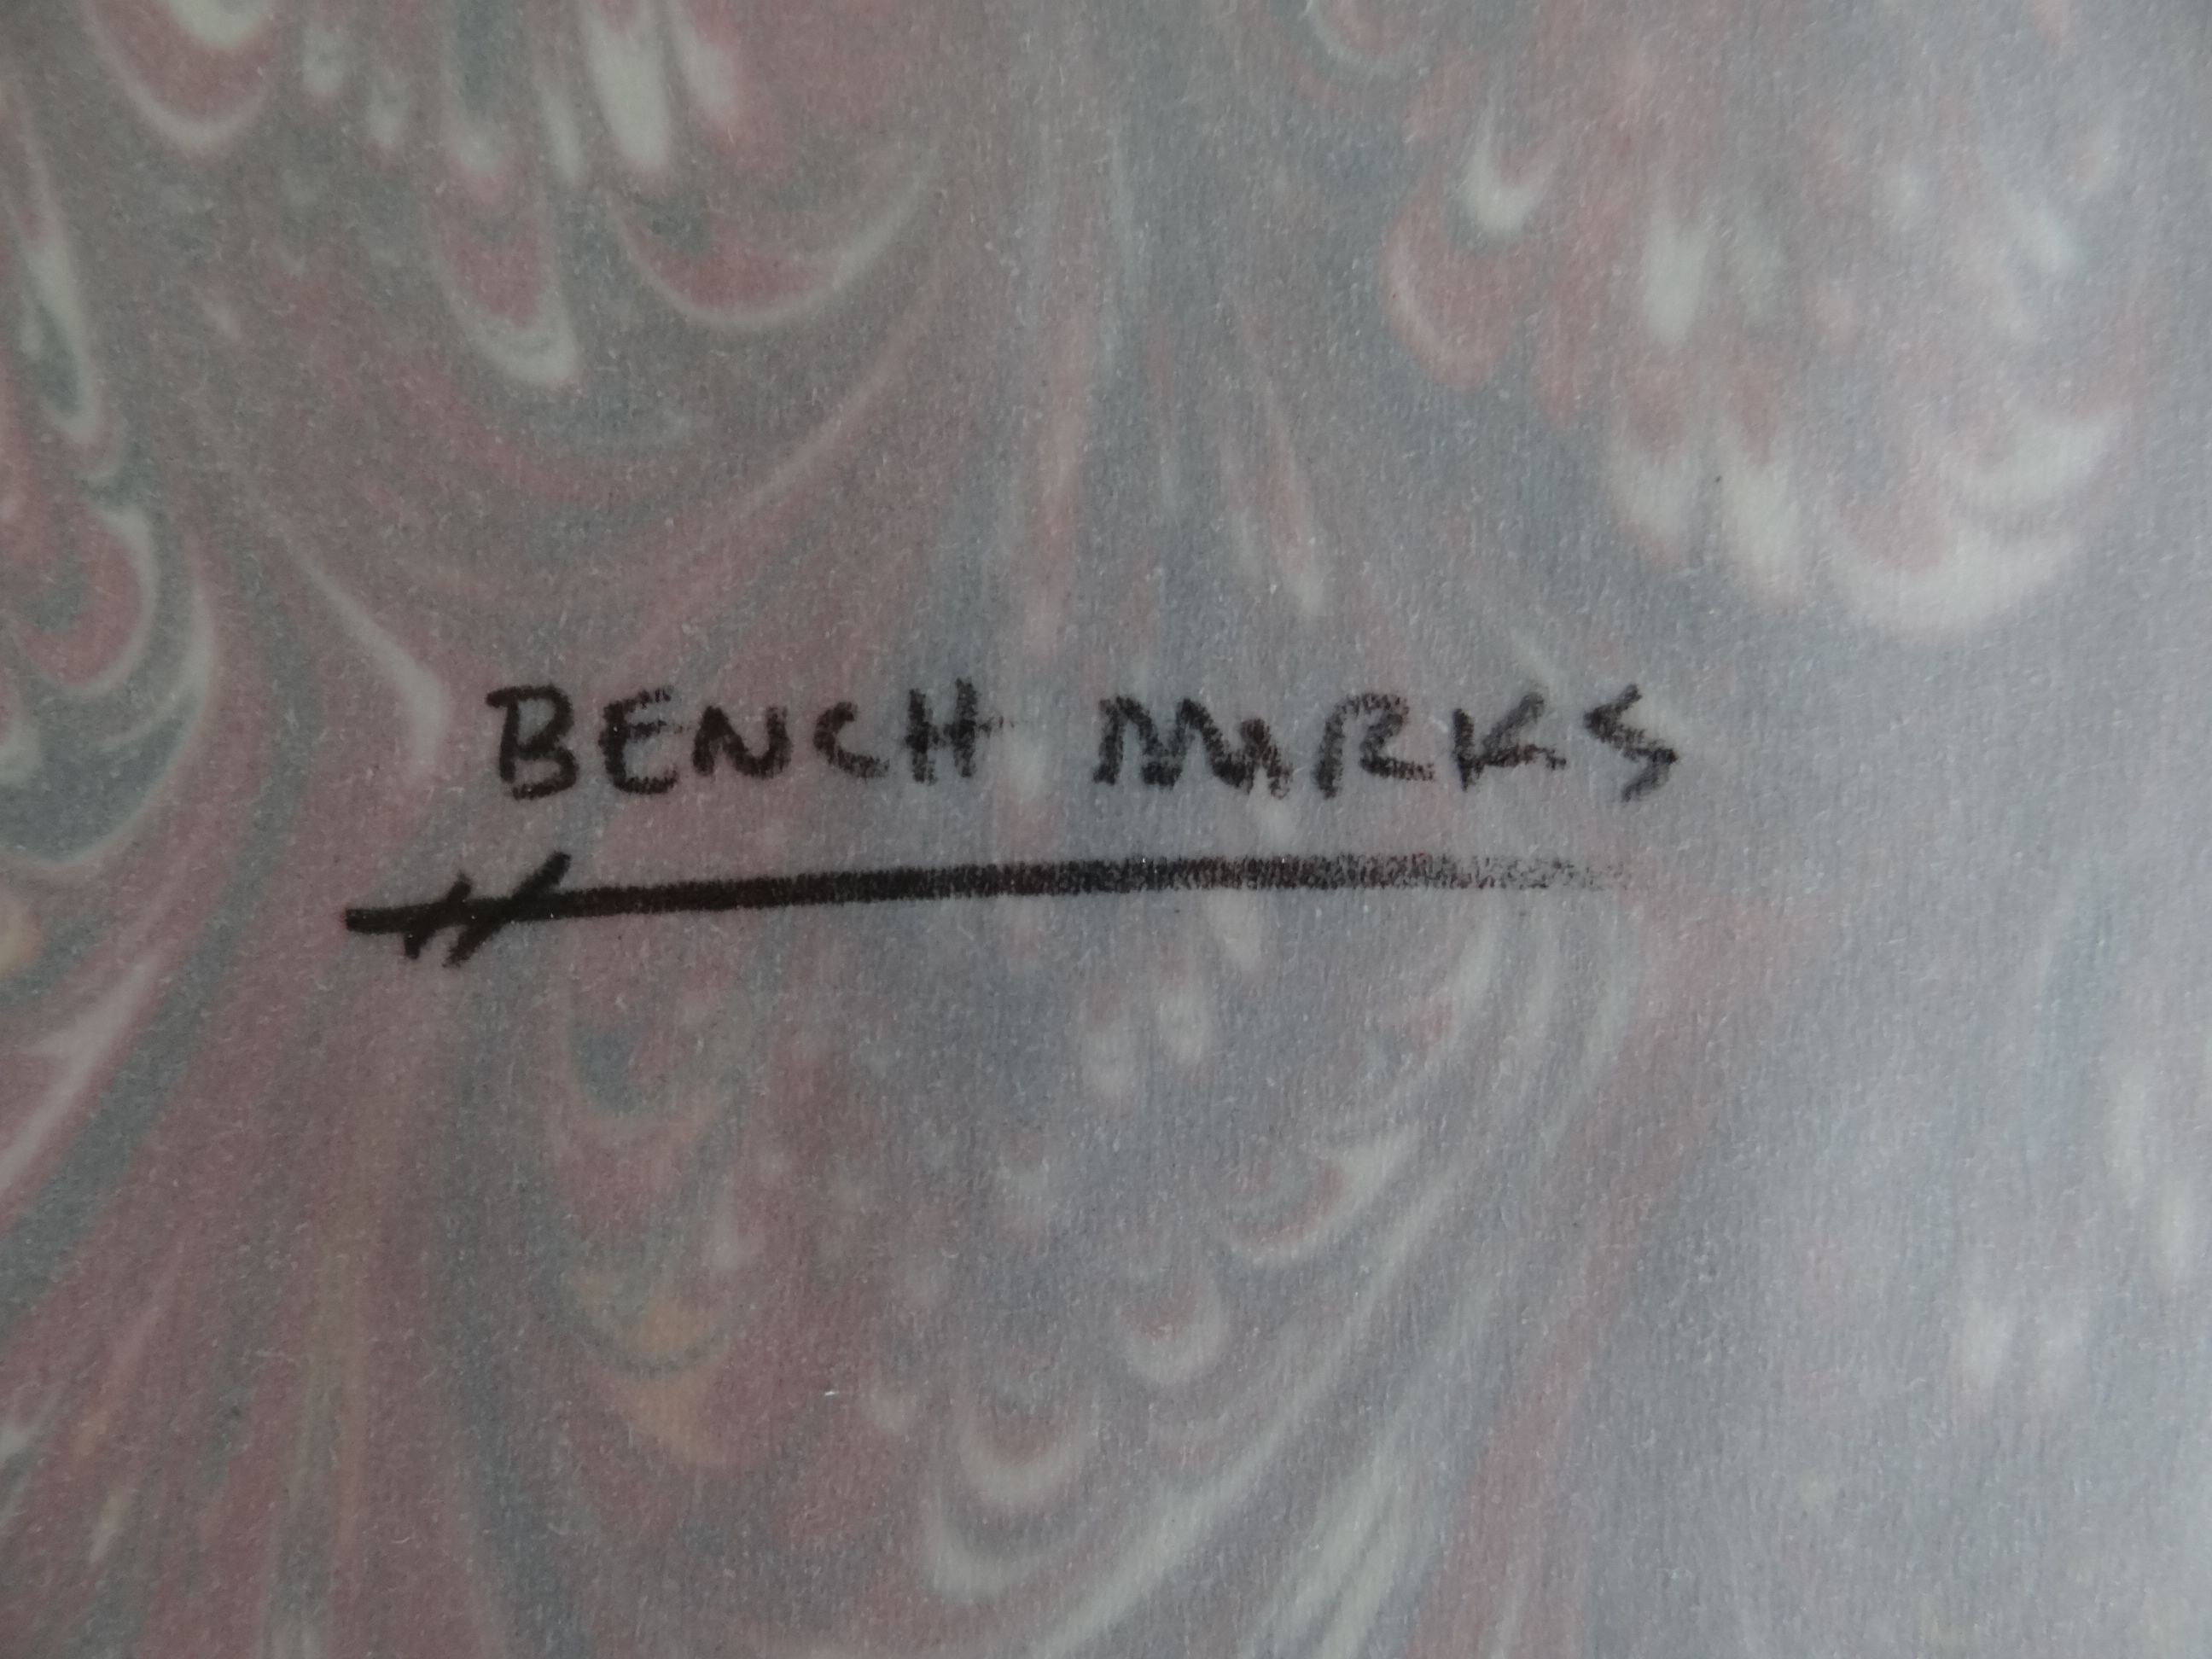 BENCH MARKS